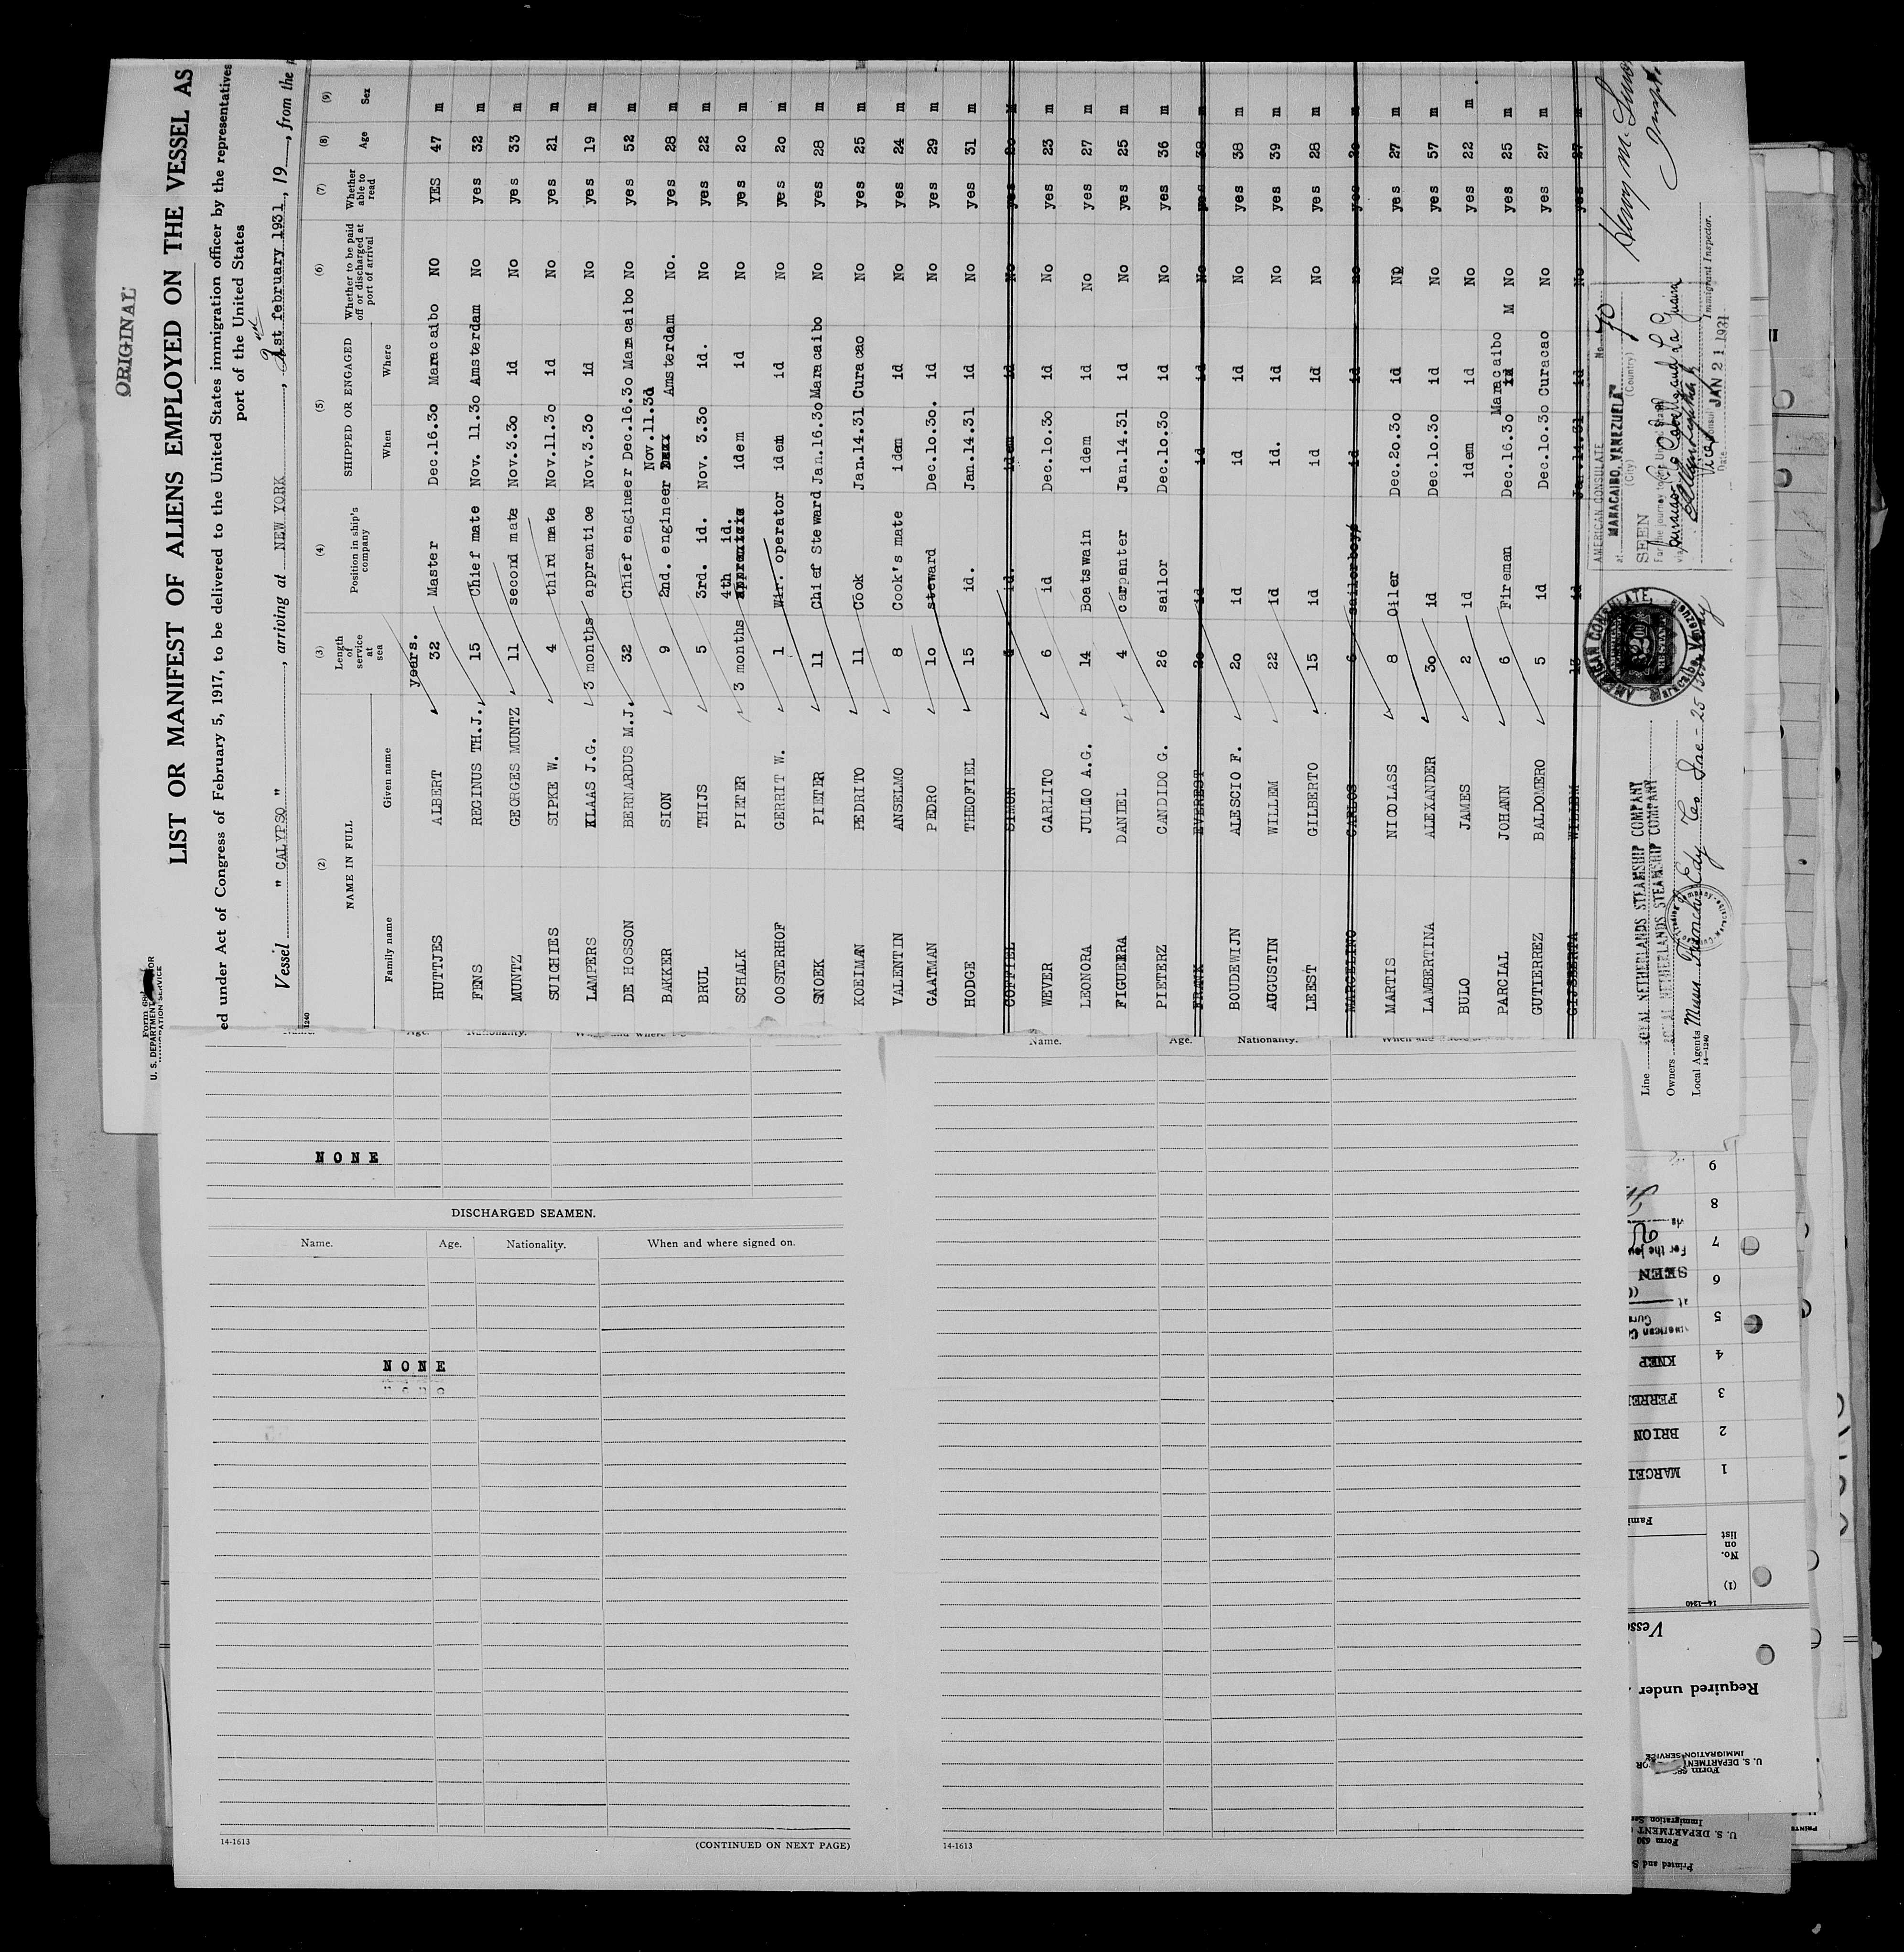 ORIGINAL
U. S. DEPARTMENT
IMMIGRATION SERVICE
LIST OR MANIFEST OF ALIENS EMPLOYED ON THE VESSEL AS
ed under Act of Congress of February 5, 1917, to be delivered to the United States immigration officer by the representatives
port of the United States
Vessel " CALYPSO ", arriving at NEW YORK, 1st february 1931, 19, from the p
1240
(2) (3) (4) (5) (6) (7) (8) (9)
NAME IN FULL Length of service at sea Position in ship's company SHIPPED OR ENGAGED Whether to be paid off or discharged at port of arrival Whether able to read Age Sex
Family name Given name When Where
years.
HUTTJES ALBERT 32 Master Dec.16.3o Maracaibo NO YES 47 m
FENS REGINUS TH.J. 15 Chief mate Nov. 11.3o Amsterdam No yes 32 m
MUNTZ GEORGES MUNTZ 11 second mate Nov.3.3o id No yes 33 m
SUICHIES SIPKE W. 4 third mate Nov.11.3o id No yes 21 m
LAMPERS KLAAS J.G. 3 months apprentice Nov.3.3o id No yes 19 m
DE HOSSON BERNARDUS M.J. 32 Chief engineer Dec.16.3o Maracaibo No yes 52 m
BAKKER SION 9 2nd. engineer Nov.11.3o Amsterdam No. yes 28 m
BRUL THIJS 5 3rd. id. Nov. 3.3o id. No yes 22 m
SCHALK PIETER 3 months 4th id. idem id No yes 2o m
OOSTERHOF GERRIT W. 1 Wir. operator idem id No yes 2o m
SNOEK PIETER 11 Chief Steward Jan.16.3o Maracaibo No yes 28 m
KOEIMAN PEDRITO 11 Cook Jan.14.31 Curacao No yes 25 m
VALENTIN ANSELMO 8 Cook's mate idem id No yes 24 m
GAATMAN PEDRO 1o steward Dec.1o.3o. id No yes 29 m
HODGE THEOFIEL 15 id. Jan.14.31 id No yes 31 m
COFFIEL SIMON id. idem id No yes 2o M
WEVER CARLITO 6 id Dec.1o.3o id No yes 23 m
LEONORA JULIO A.G. 14 Boatswain idem id No yes 27 m
FIGUERRA DANIEL 4 carpanter Jan.14.31 id No yes 25 m
PIETERZ CANDIDO G. 26 sailor Dec.1o.3o id No yes 36 m
FRANK EVEREST 2o id id id No yes 38 m
BOUDEWIJN ALESCIO F. 2o id id id No yes 38 m
AUGUSTIN WILLEM 22 id id. id No yes 39 m
LEEST GILBERTO 15 id id id No yes 28 m
MARCELINO CARLOS 6 sailorboys id id no yes 2o m
MARTIS NICOLASS 8 Oiler Dec.2o.3o id NO yes 27 m
LAMBERTINA ALEXANDER 3o id Dec.1o.3o id No yes 57 m
BULO JAMES 2 id idem id No yes 22 m
PARCIAL JOHANN 6 Fireman Dec.16.3o Maracaibo M No yes 25 m
GUTIERREZ BALDOMERO 5 id Dec.1o.3o Curacao No yes 27 m
GIJSBERTA WILLEM 13 id Jan.14.31 id No yes 27 m
Line ROYAL NETHERLANDS STEAMSHIP COMPANY
Owners ROYAL NETHERLANDS STEAMSHIP COMPANY
Local Agents
14—1240
AMERICAN CONSULATE
Maracaibo, Venezuela
AMERICAN CONSULATE No. 70
at MARACAIBO, VENEZUELA
(City) (Country)
SEEN
For the journey to the United States
Date JAN 21 1931
Immigrant Inspector.
Henry M.
Name. Age. Nationality. When and where
NONE
DISCHARGED SEAMEN.
Name. Age. Nationality. When and where signed on.
NONE
14-1613 (CONTINUED ON NEXT PAGE)
Name. Age. Nationality. When and where
14-1613
9
8
7 For the jou
6 SEEN
5
4 KNEP
3 FERRE
2 BRION
1 MARCEI
Fami
No. on list
(1)
14—1240
Vesse
Required under
U. S. DEPARTMENT
IMMIGRATION SERVICE
Form 630
U. S. DEPARTMENT
Immigration Se
Printed and S